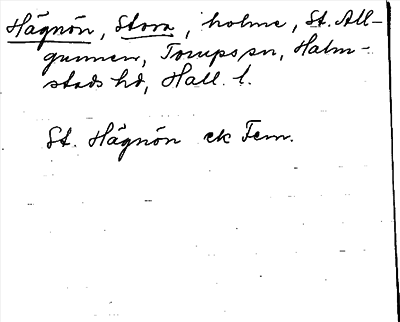 Hägnön, Stora, holme, St. All-
gunnen, Torups sn, Halm-
stads hd, Hall. l.
St. Hägnön ek Tem.